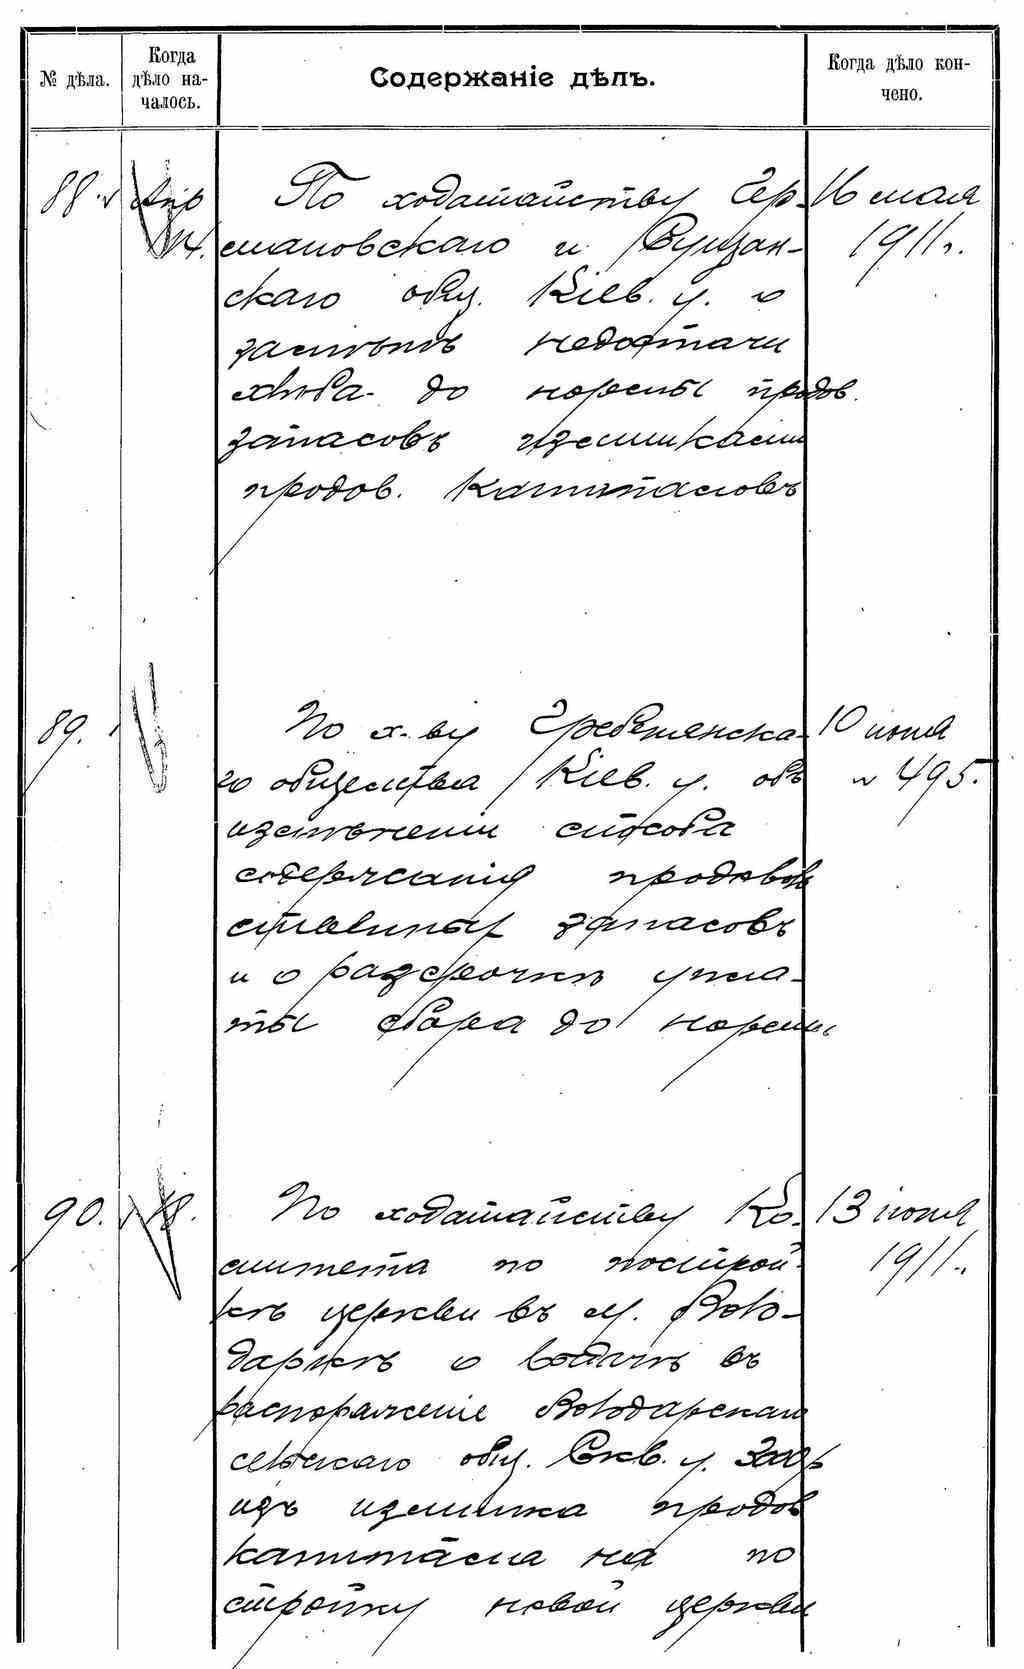 № дѣла.
Когда
дѣло на-
чалось.
Содержаніе дѣлъ.
Когда дѣло кон-
чено.
88.
Апр
14.
По ходатайству Гер-
мановскаго и
скаго общ. Кіев. у. о
замѣнѣ недостачи
хлѣба до нормы продов.
запасовъ излишками
продов. капиталовъ
16 мая
1911 г.
89.
По х-ву Гребенянска-
го общества Кіев. у. объ
измѣненіи способа
содержанія продоволь
ственных запасовъ
и о разсрочкѣ упла-
ты сбора до нормы
10 іюня
№ 495.
90.
18.
По ходатайству Ко-
митета по построй-
кѣ церкви въ м. Воло-
даркѣ о выдачѣ въ
распоряженіе Володарскаго
сельскаго общ. Скв. у.
изъ излишка продов
капитала на по
стройку новой церкви
13 іюня
1911 г.